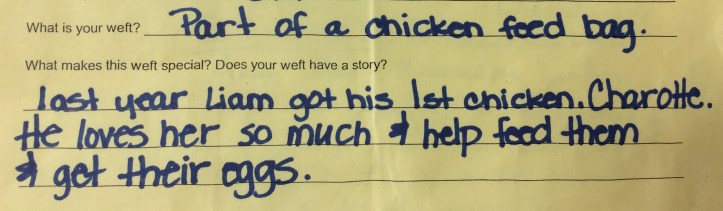 What is your weft? Part of a chicken feed bag.
What makes this weft special? Does your weft have a story?
last year Liam got his 1st chicken. Charotte.
He loves her so much & help feed them
& get their eggs.